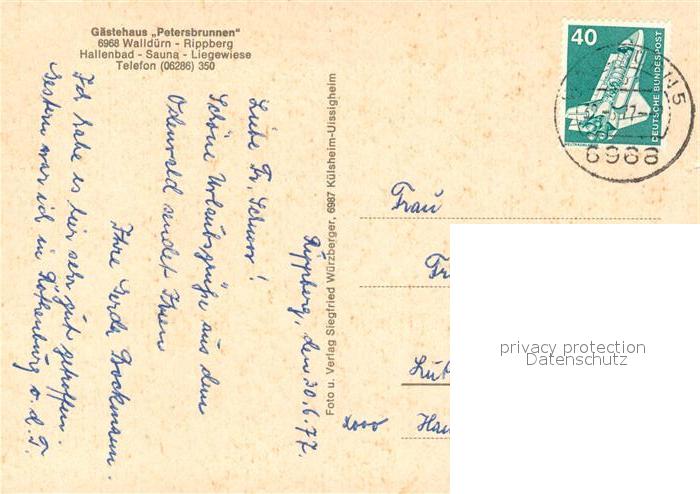 Gästehaus „Petersbrunnen"
6968 Walldürn - Rippberg
Hallenbad - Sauna - Liegewiese
Telefon (06286) 350
Rippberg, den 30.6.77.
Liebe Fr.
Schöne Urlaubsgrüße aus dem
Odenwald sendet Ihnen
Ihre Gerda Bockmann.
Ich habe es hier sehr gut getroffen.
Gestern war ich in Rothenburg o. d. T.
Foto u. Verlag Siegfried Würzberger, 6987 Külsheim-Uissigheim
40
DEUTSCHE BUNDESPOST
6968
Frau
Fr
Lüb
Han
privacy protection
Datenschutz